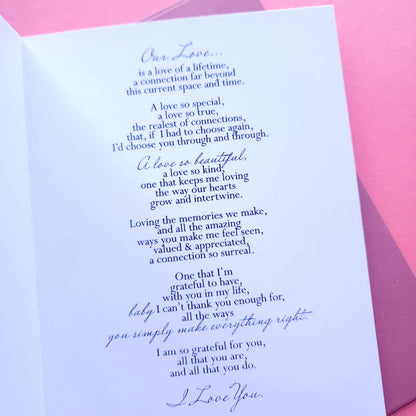 Our Love...
is a love of a lifetime,
a connection far beyond
this current space and time.
A love so special,
a love so true,
the realest of connections,
that, if I had to choose again,
I'd choose you through and through.
A love so beautiful,
a love so kind,
one that keeps me loving
the way our hearts
grow and intertwine.
Loving the memories we make,
and all the amazing
ways you make me feel seen,
valued & appreciated,
a connection so surreal.
One that I'm
grateful to have,
with you in my life,
baby I can't thank you enough for,
all the ways
you simply make everything right.
I am so grateful for you,
all that you are,
and all that you do.
I Love You.